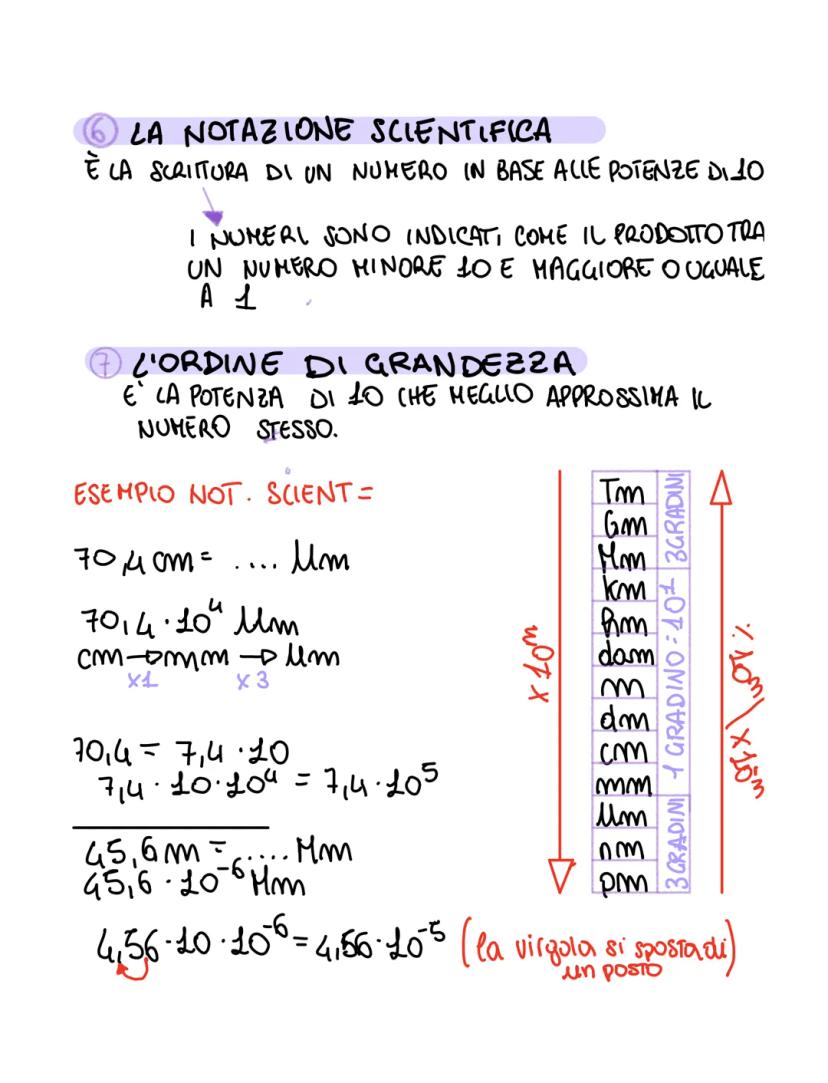 6 LA NOTAZIONE SCIENTIFICA
È LA SCRITTURA DI UN NUMERO IN BASE ALLE POTENZE DI 10
I NUMERI SONO INDICATI COME IL PRODOTTO TRA
UN NUMERO MINORE 10 E MAGGIORE O UGUALE
A 1
7 L'ORDINE DI GRANDEZZA
E' LA POTENZA DI 10 CHE MEGLIO APPROSSIMA IL
NUMERO STESSO.
ESEMPIO NOT. SCIENT =
70,4 cm = .... μm
70,4 · 10⁴ μm
cm → mm → μm
x1 x3
70,4 = 7,4 · 10
7,4 · 10 · 10⁴ = 7,4 · 10⁵
45,6 m = .... Mm
45,6 · 10⁻⁶ Mm
4,56 · 10 · 10⁻⁶ = 4,56 · 10⁻⁵ (la virgola si sposta di)
un posto
x 10ᵐ
Tm
Gm
Mm
km
hm
dam
m
dm
cm
mm
μm
nm
pm
3 GRADINI
1 GRADINO = 10¹
3 GRADINI